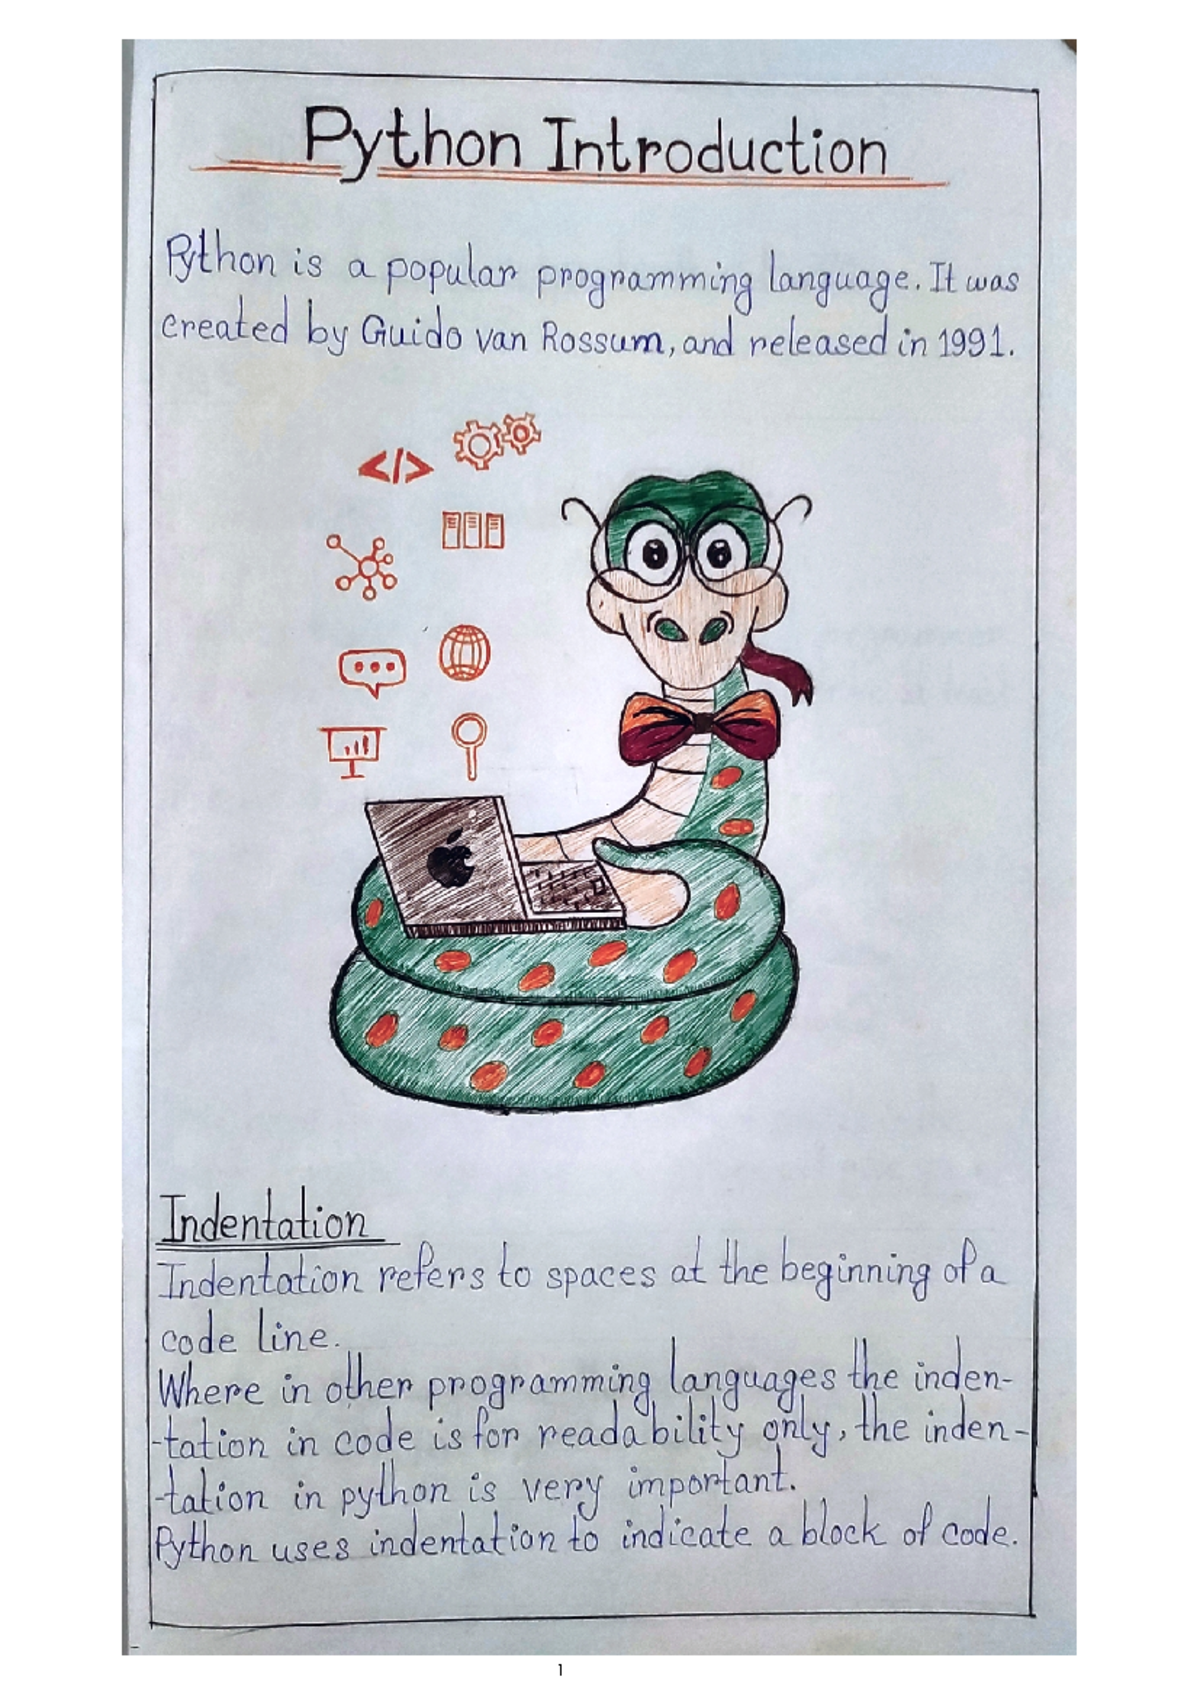 Python Introduction
Python is a popular programming language. It was
created by Guido van Rossum, and released in 1991.
</>
Indentation
Indentation refers to spaces at the beginning of a
code line.
Where in other programming languages the inden-
-tation in code is for readability only, the inden-
-tation in python is very important.
Python uses indentation to indicate a block of code.
1